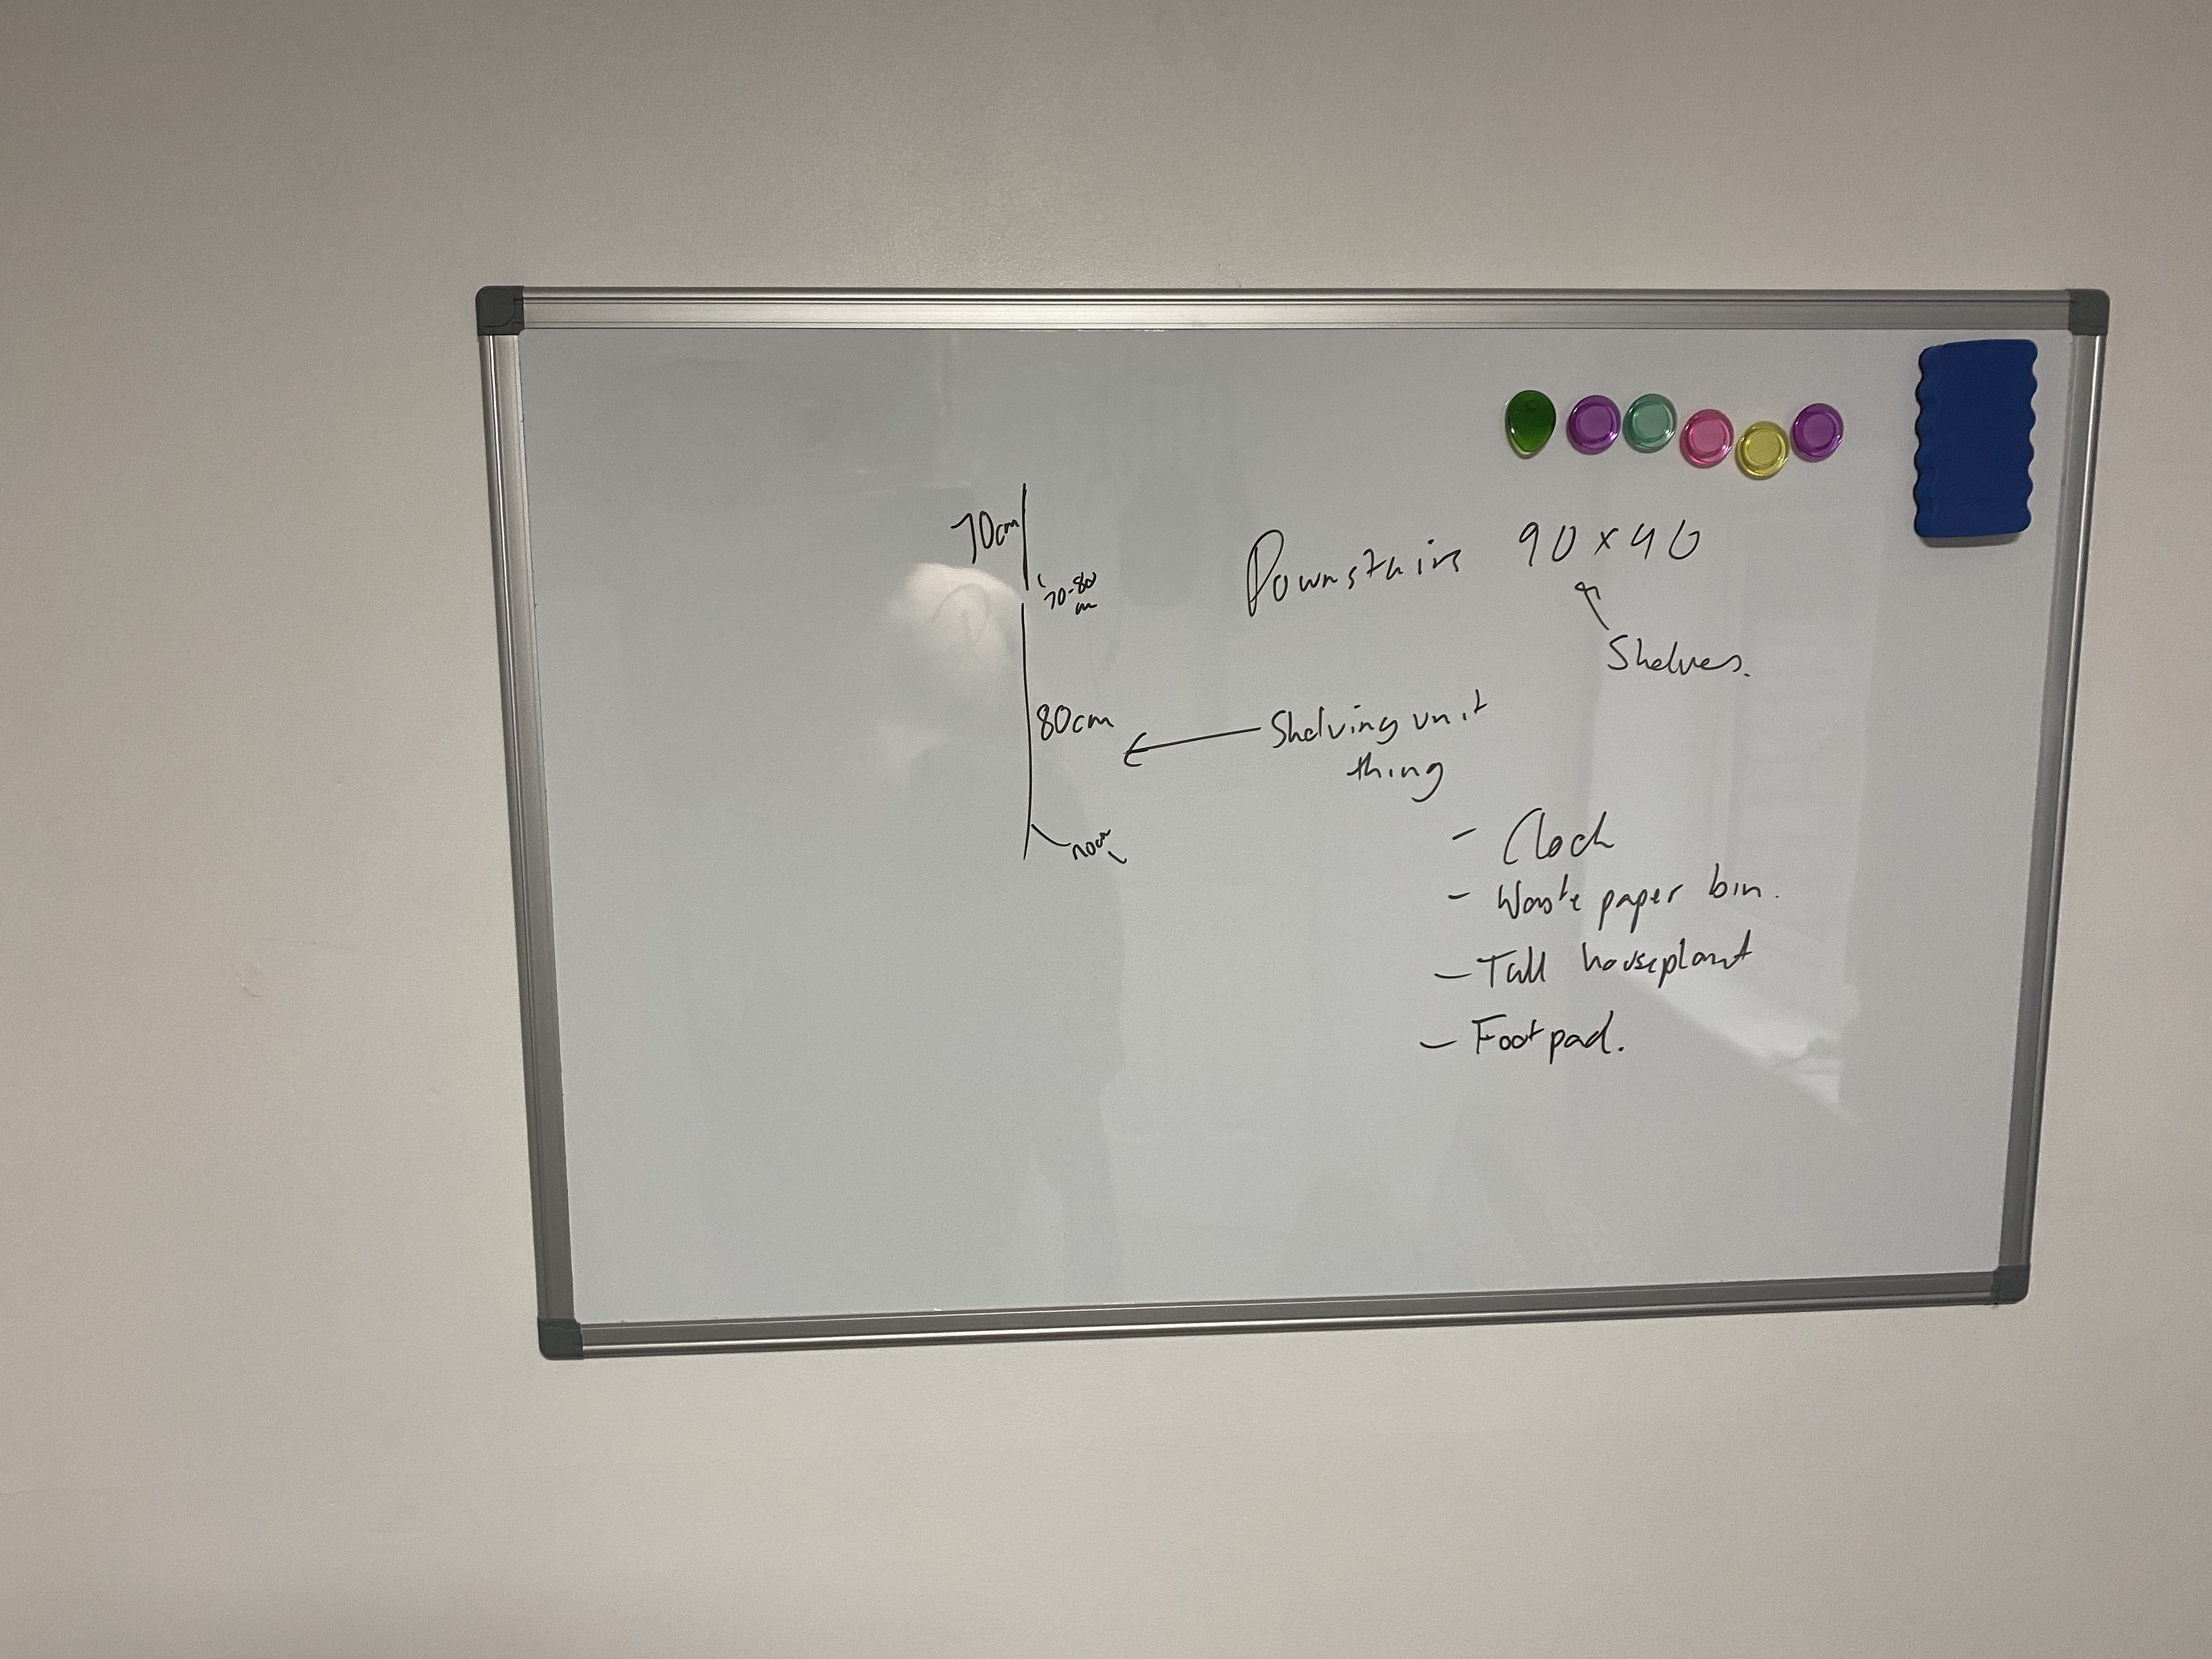 70cm
70-80
cm
Downstairs 90 x 40
Shelves.
80cm
Shelving unit
thing
- Clock
- Waste paper bin.
- Tall houseplant
- Foot pad.